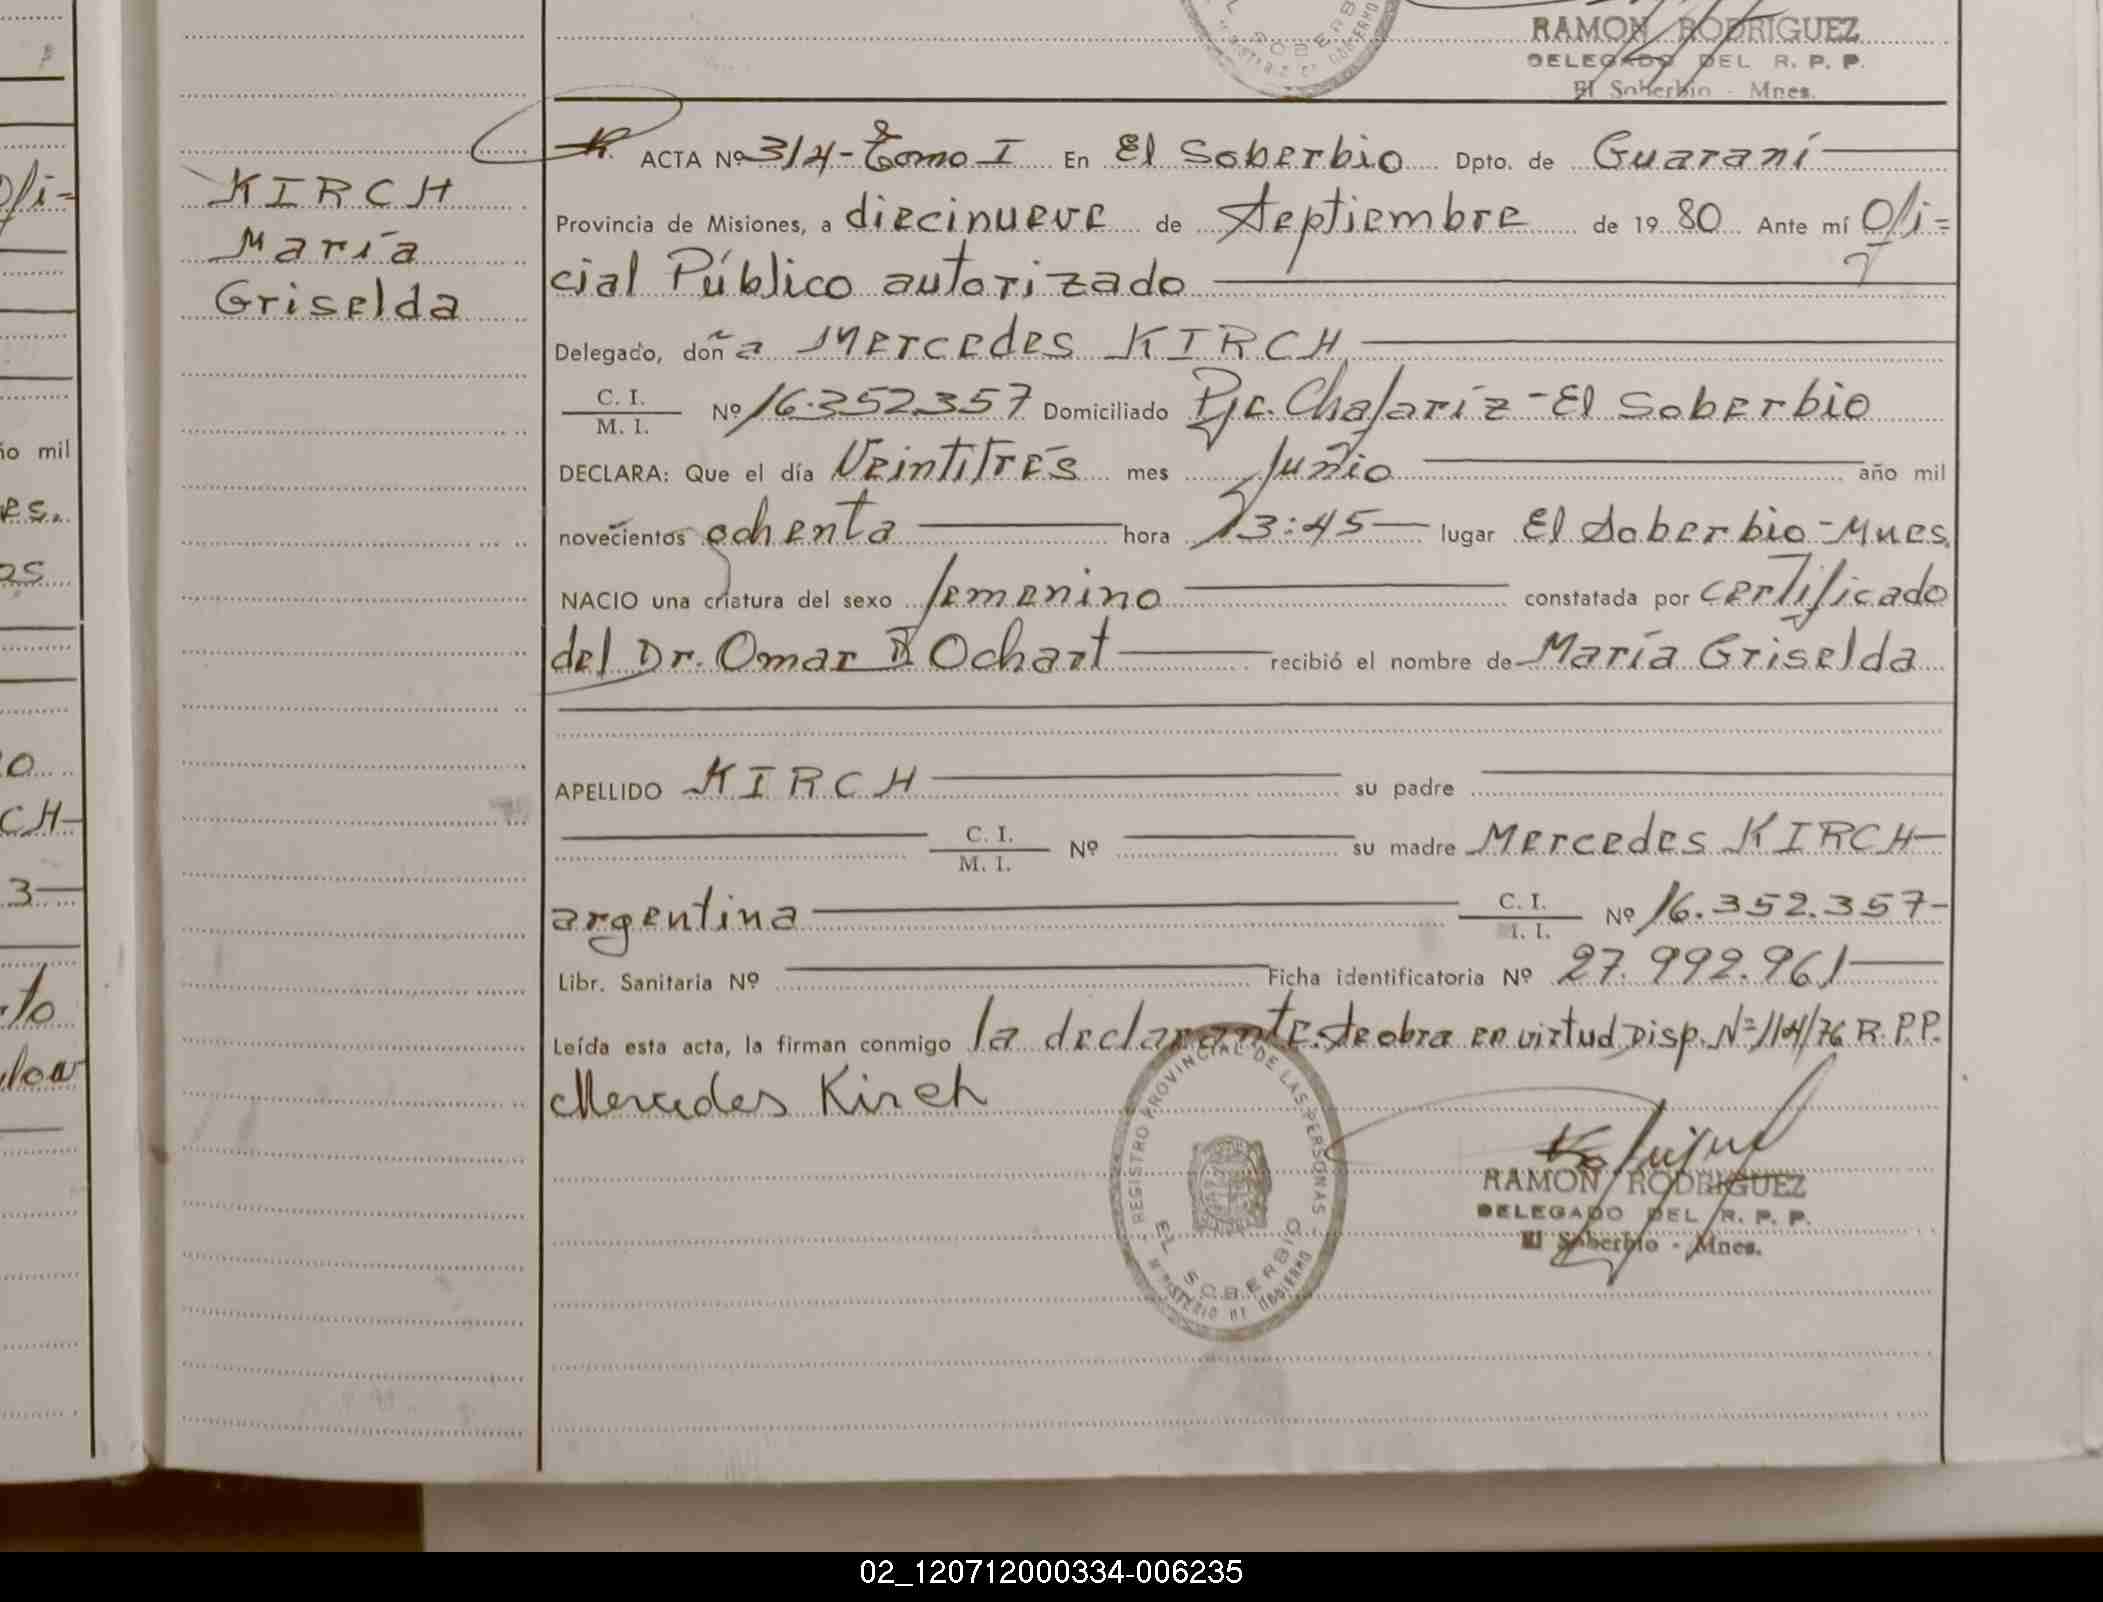 RAMON RODRIGUEZ
DELEGADO DEL R. P. P.
El Soberbio - Mnes.
KIRCH
María
Griselda
ACTA Nº 314 - Tomo I En El Soberbio Dpto. de Guaraní
Provincia de Misiones, a diecinueve de Septiembre de 19 80 Ante mí Ofi=
cial Público autorizado
Delegado, doña Mercedes KIRCH
C. I.
M. I. Nº 16.352.357 Domiciliado Pje. Chafariz - El Soberbio
DECLARA: Que el día Veintitrés mes Junio año mil
novecientos ochenta hora 23:45 lugar El Soberbio - Mnes.
NACIO una criatura del sexo femenino constatada por certificado
del Dr. Omar Ochart recibió el nombre de María Griselda
APELLIDO KIRCH su padre
C. I.
M. I. Nº su madre Mercedes KIRCH
argentina C. I. Nº 16.352.357-
Libr. Sanitaria Nº Ficha identificatoria Nº 27.992.961
Leída esta acta, la firman conmigo la declarante. Se obra en virtud Disp. Nº 114/76 R.P.P.
Mercedes Kirch
REGISTRO PROVINCIAL DE LAS PERSONAS
EL SOBERBIO
MINISTERIO DE GOBIERNO
RAMON RODRIGUEZ
DELEGADO DEL R. P. P.
El Soberbio - Mnes.
02_120712000334-006235